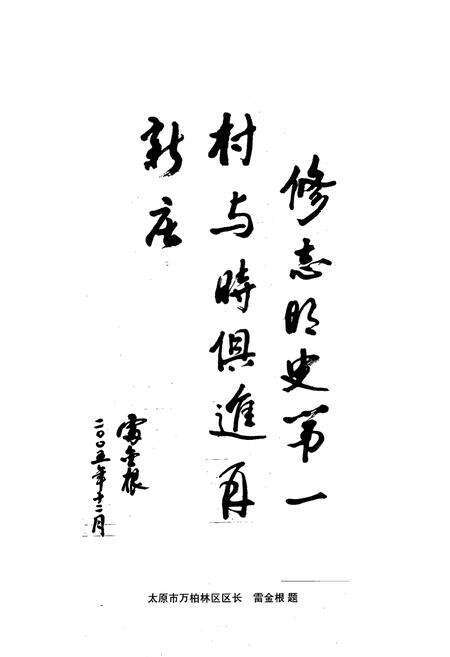 修志明史第一
村与時俱進再
新庄
雷金根
二〇〇五年十二月
太原市万柏林区区长 雷金根 题